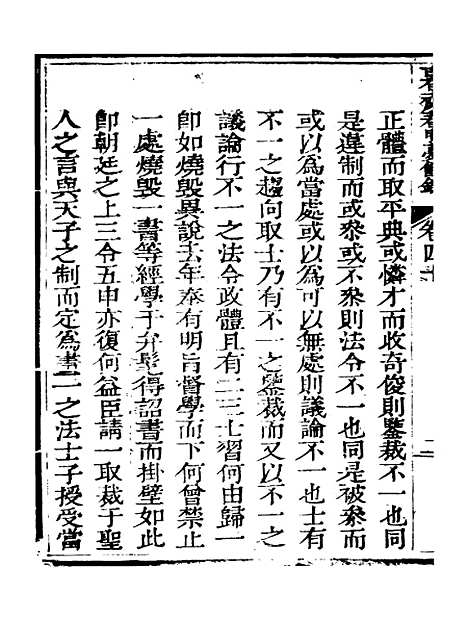 正體而取平典或憐才而收奇俊則鑒裁不一也同
是違制而或叅或不叅則法令不一也同是被叅而
或以為當處或以為可以無處則議論不一也士有
不一之趨向取士乃有不一之鑒裁而又以不一之
議論行不一之法令政體且有二三士習何由歸一
卽如燒毀異說去年奉有明旨督學而下何曾禁止
一處燒毀一書等經學于弁髦得詔書而掛壁如此
卽朝廷之上三令五申亦復何益臣請一取裁于聖
人之言與天子之制而定為畫一之法士子授受當
卷四
二